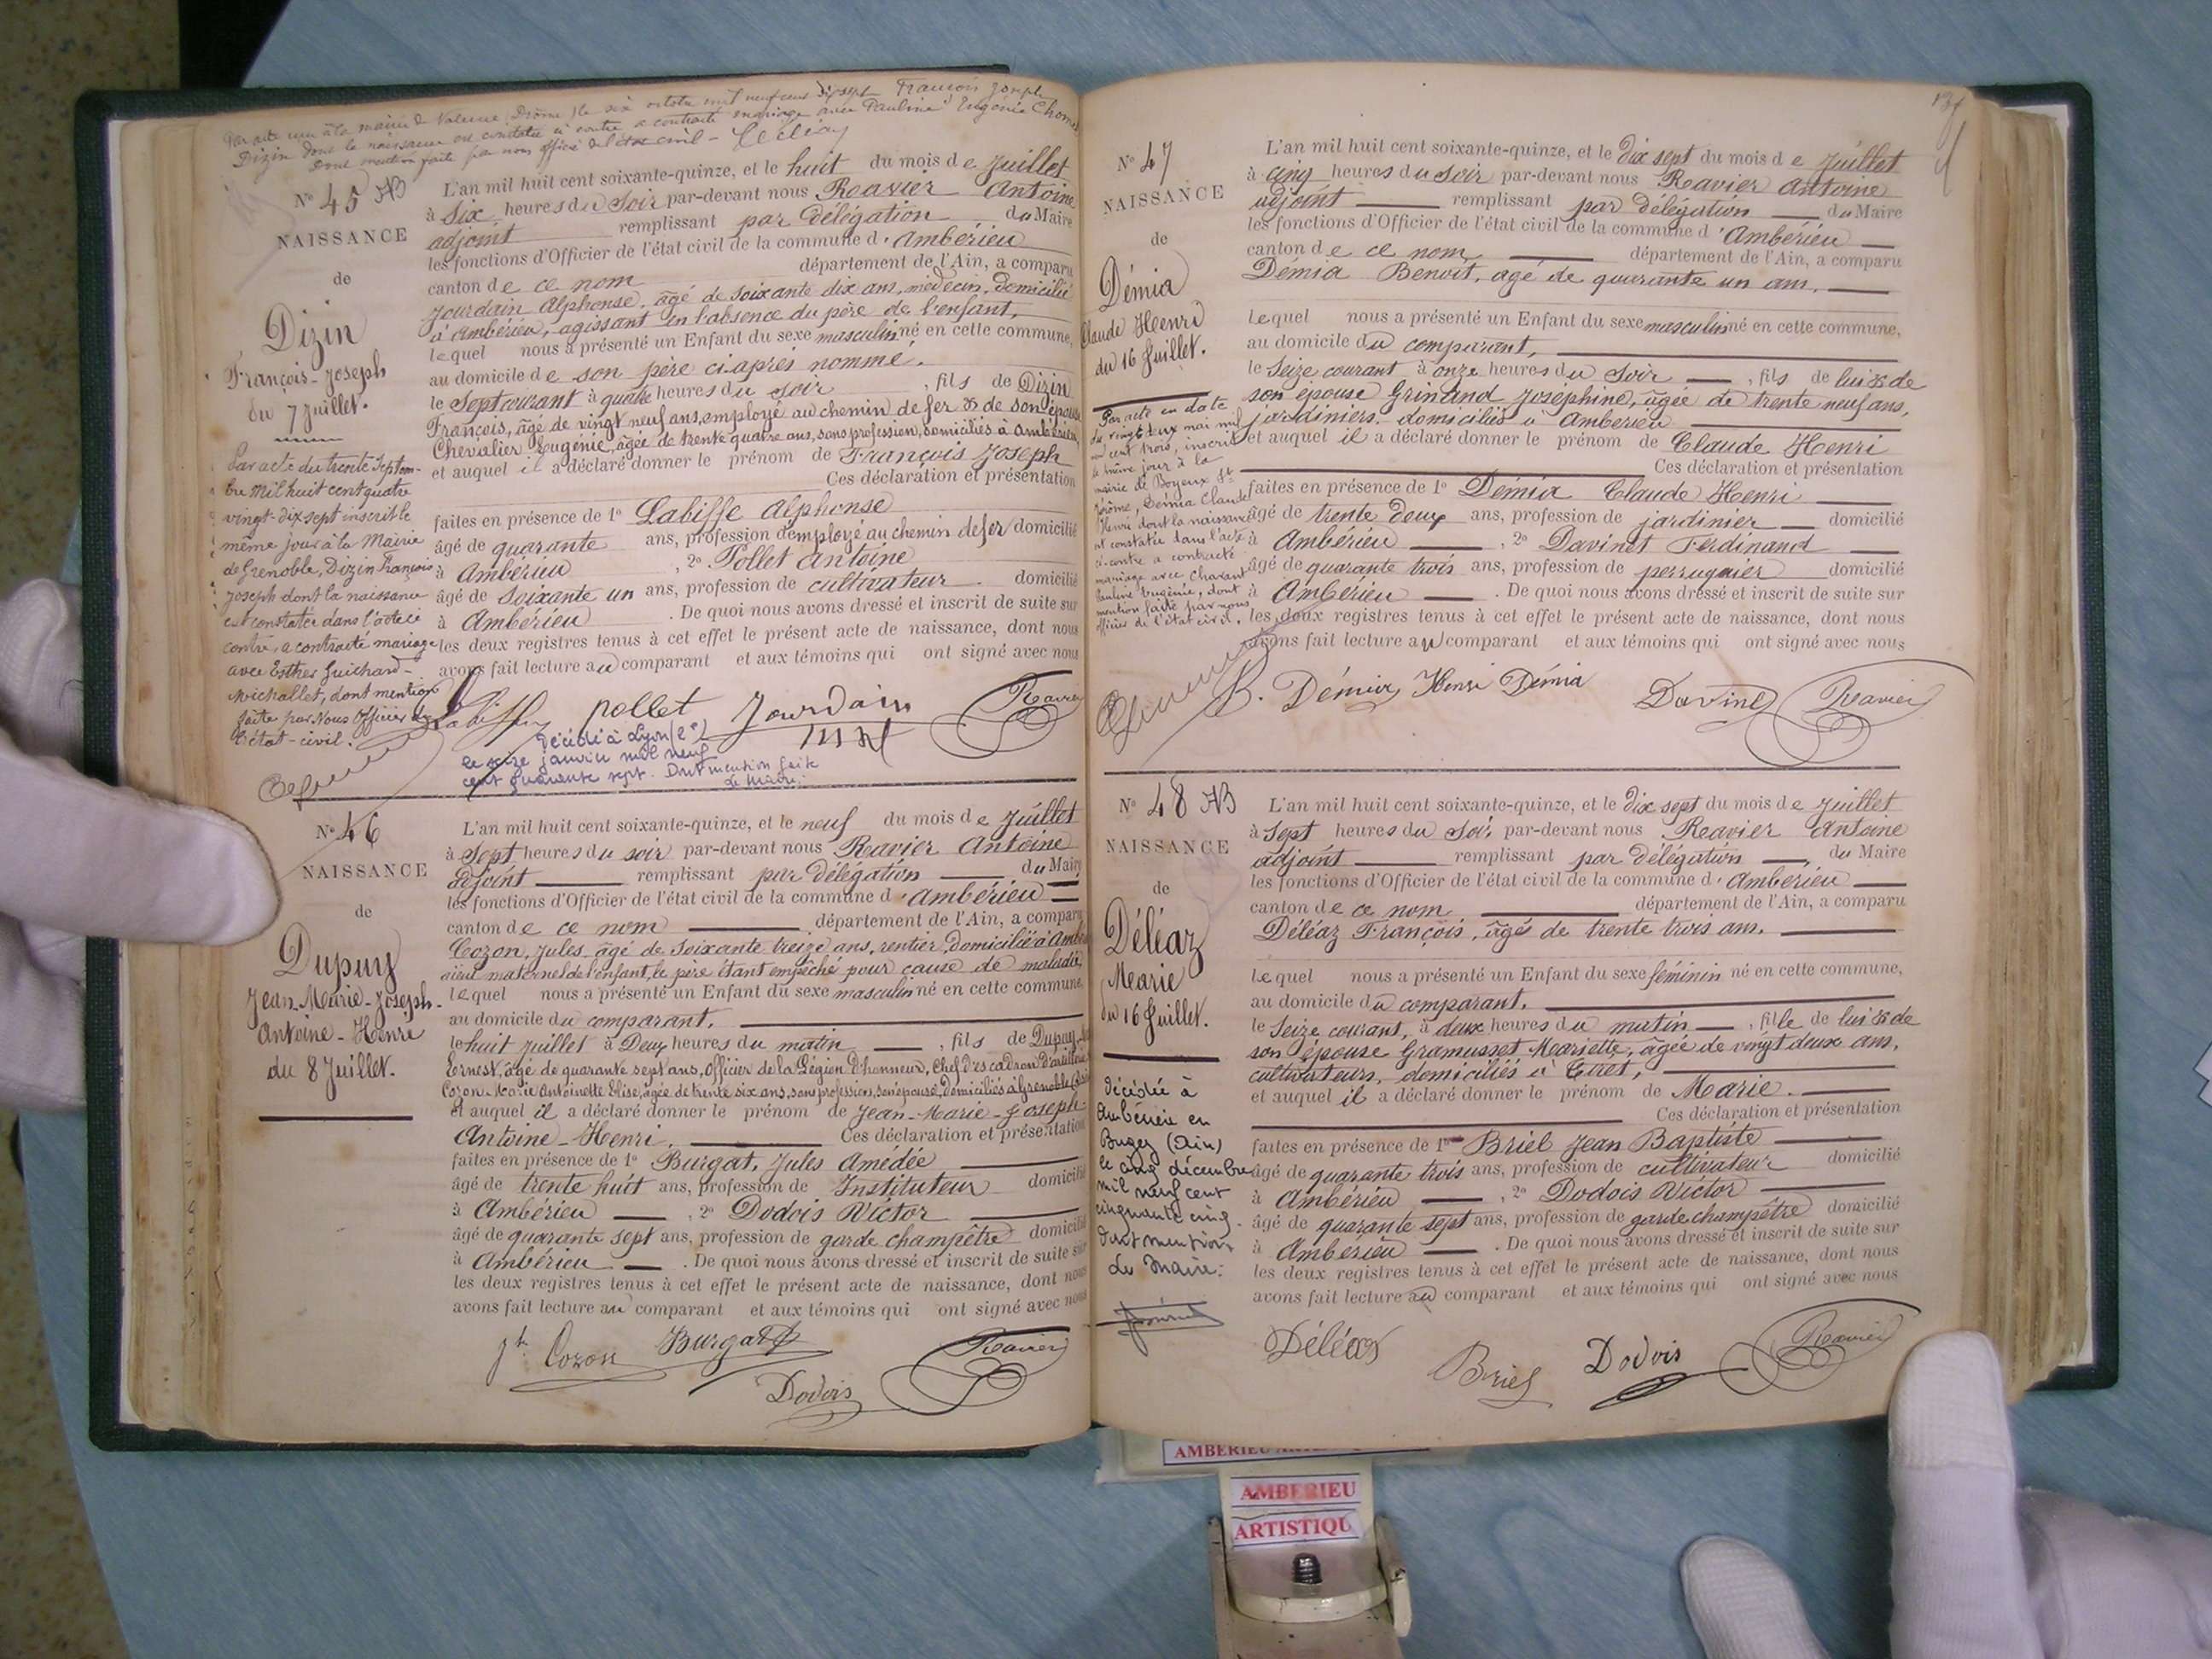 Par acte reçu à la mairie de Valence, Drôme, le six octobre mil neuf cent dix sept François Joseph
Dizin dont la naissance est constatée ci contre a contracté mariage avec Pauline Eugénie
Dont mention faite par nous officier de l'état civil -
N° 45
NAISSANCE
de
Dizin
François-Joseph
du 7 Juillet.
L'an mil huit cent soixante-quinze, et le huit du mois de Juillet
à Six heures du Soir par-devant nous Ravier Antoine
adjoint remplissant par délégation du Maire
les fonctions d'Officier de l'état civil de la commune d'Ambérieu
canton de ce nom département de l'Ain, a comparu
Jourdain Alphonse, âgé de soixante dix ans, médecin, domicilié
à Ambérieu, agissant en l'absence du père de l'enfant,
lequel nous a présenté un Enfant du sexe masculin né en cette commune,
au domicile de son père ci-après nommé.
le Sept courant à quatre heures du soir, fils de Dizin
François, âgé de vingt neuf ans, employé au chemin de fer & de son épouse
Chevalier Eugénie, âgée de trente quatre ans, sans profession, domiciliés à Ambérieu
et auquel il a déclaré donner le prénom de François Joseph
Ces déclaration et présentation
faites en présence de 1° Labisse Alphonse
âgé de quarante ans, profession d'employé au chemin de fer domicilié
à Ambérieu, 2° Pollet Antoine
âgé de Soixante un ans, profession de cultivateur. domicilié
à Ambérieu. De quoi nous avons dressé et inscrit de suite sur
les deux registres tenus à cet effet le présent acte de naissance, dont nous
avons fait lecture au comparant et aux témoins qui ont signé avec nous
Par acte du trente Septem-
bre mil huit cent quatre
vingt-dix sept inscrit le
même jour à la Mairie
de Grenoble, Dizin François
Joseph dont la naissance
est constatée dans l'acte ci
contre, a contracté mariage
avec Esther Guichard-
Michallet, dont mention
faite par Nous Officier de
l'état-civil.
Labisse pollet Jourdain Ravier
Décédé à Lyon (2e)
le seize janvier mil neuf
cent quarante sept. Dont mention faite
Le Maire:
N° 46
NAISSANCE
de
Dupuy
Jean-Marie-Joseph-
Antoine-Henri
du 8 Juillet.
L'an mil huit cent soixante-quinze, et le neuf du mois de Juillet
à Sept heures du soir par-devant nous Ravier Antoine
adjoint remplissant par délégation du Maire
les fonctions d'Officier de l'état civil de la commune d'Ambérieu
canton de ce nom département de l'Ain, a comparu
Cozon, Jules, âgé de Soixante treize ans, rentier, domicilié à
aïeul maternel de l'enfant, le père étant empêché pour cause de maladie,
lequel nous a présenté un Enfant du sexe masculin né en cette commune
au domicile du comparant.
le huit Juillet à Deux heures du matin, fils de Dupuy
Ernest, âgé de quarante sept ans, Officier de la Légion d'honneur, Chef d'escadron d'artillerie
Cozon Marie Antoinette Elise, âgée de trente six ans, sans profession, son épouse, domiciliés à Grenoble
et auquel il a déclaré donner le prénom de Jean-Marie-Joseph
Antoine-Henri, Ces déclaration et présentation
faites en présence de 1° Burgat, Jules Amédée
âgé de trente huit ans, profession de Instituteur domicilié
à Ambérieu, 2° Dodois Victor
âgé de quarante sept ans, profession de garde champêtre domicilié
à Ambérieu. De quoi nous avons dressé et inscrit de suite sur
les deux registres tenus à cet effet le présent acte de naissance, dont nous
avons fait lecture au comparant et aux témoins qui ont signé avec nous
Cozon Burgat Dodois Ravier
N° 47
NAISSANCE
de
Démia
Claude Henri
du 16 Juillet.
L'an mil huit cent soixante-quinze, et le dix sept du mois de Juillet
à cinq heures du Soir par-devant nous Ravier Antoine
adjoint remplissant par délégation du Maire
les fonctions d'Officier de l'état civil de la commune d'Ambérieu
canton de ce nom département de l'Ain, a comparu
Démia Benoit, âgé de quarante un ans,
Lequel nous a présenté un Enfant du sexe masculin né en cette commune,
au domicile du comparant,
le Seize courant à onze heures du Soir, fils de lui & de
son épouse Grinand Joséphine, âgée de trente neuf ans,
jardiniers, domiciliés à Ambérieu
et auquel il a déclaré donner le prénom de Claude Henri
Ces déclaration et présentation
faites en présence de 1° Démia Claude Henri
âgé de trente deux ans, profession de jardinier domicilié
à Ambérieu, 2° Davinet Ferdinand
âgé de quarante trois ans, profession de perruquier domicilié
à Ambérieu. De quoi nous avons dressé et inscrit de suite sur
les deux registres tenus à cet effet le présent acte de naissance, dont nous
avons fait lecture au comparant et aux témoins qui ont signé avec nous
Par acte en date
du vingt deux mai mil
neuf cent trois, inscrit
le même jour à la
mairie de Boyeux St
Jérôme, Démia Claude
Henri dont la naissance
est constatée dans l'acte
ci-contre a contracté
mariage avec Charant
Pauline Eugénie, dont
mention faite par nous
officier de l'état civil.
B. Démia Henri Démia Davinet Ravier
N° 48
NAISSANCE
de
Déléaz
Marie
du 16 Juillet.
L'an mil huit cent soixante-quinze, et le dix sept du mois de Juillet
à Sept heures du Soir par-devant nous Ravier Antoine
adjoint remplissant par délégation, du Maire
les fonctions d'Officier de l'état civil de la commune d'Ambérieu
canton de ce nom département de l'Ain, a comparu
Déléaz François, âgé de trente trois ans.
Lequel nous a présenté un Enfant du sexe féminin né en cette commune,
au domicile du comparant.
le Seize courant, à deux heures du matin, fille de lui & de
son épouse Gramusset Mariette, âgée de vingt deux ans,
cultivateurs, domiciliés à Tiret,
et auquel il a déclaré donner le prénom de Marie.
Ces déclaration et présentation
faites en présence de 1° Briel Jean Baptiste
âgé de quarante trois ans, profession de cultivateur domicilié
à Ambérieu, 2° Dodois Victor
âgé de quarante sept ans, profession de garde champêtre domicilié
à Ambérieu. De quoi nous avons dressé et inscrit de suite sur
les deux registres tenus à cet effet le présent acte de naissance, dont nous
avons fait lecture au comparant et aux témoins qui ont signé avec nous
Décédée à
Ambérieu en
Bugey (Ain)
le cinq décembre
mil neuf cent
cinquante cinq.
Dont mention
Le Maire:
Déléaz Briel Dodois Ravier
AMBERIEU
AMBERIEU
ARTISTIQU